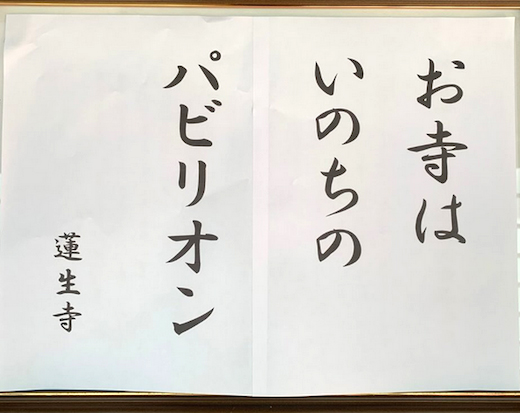 お寺は
いのちの
パビリオン
蓮生寺